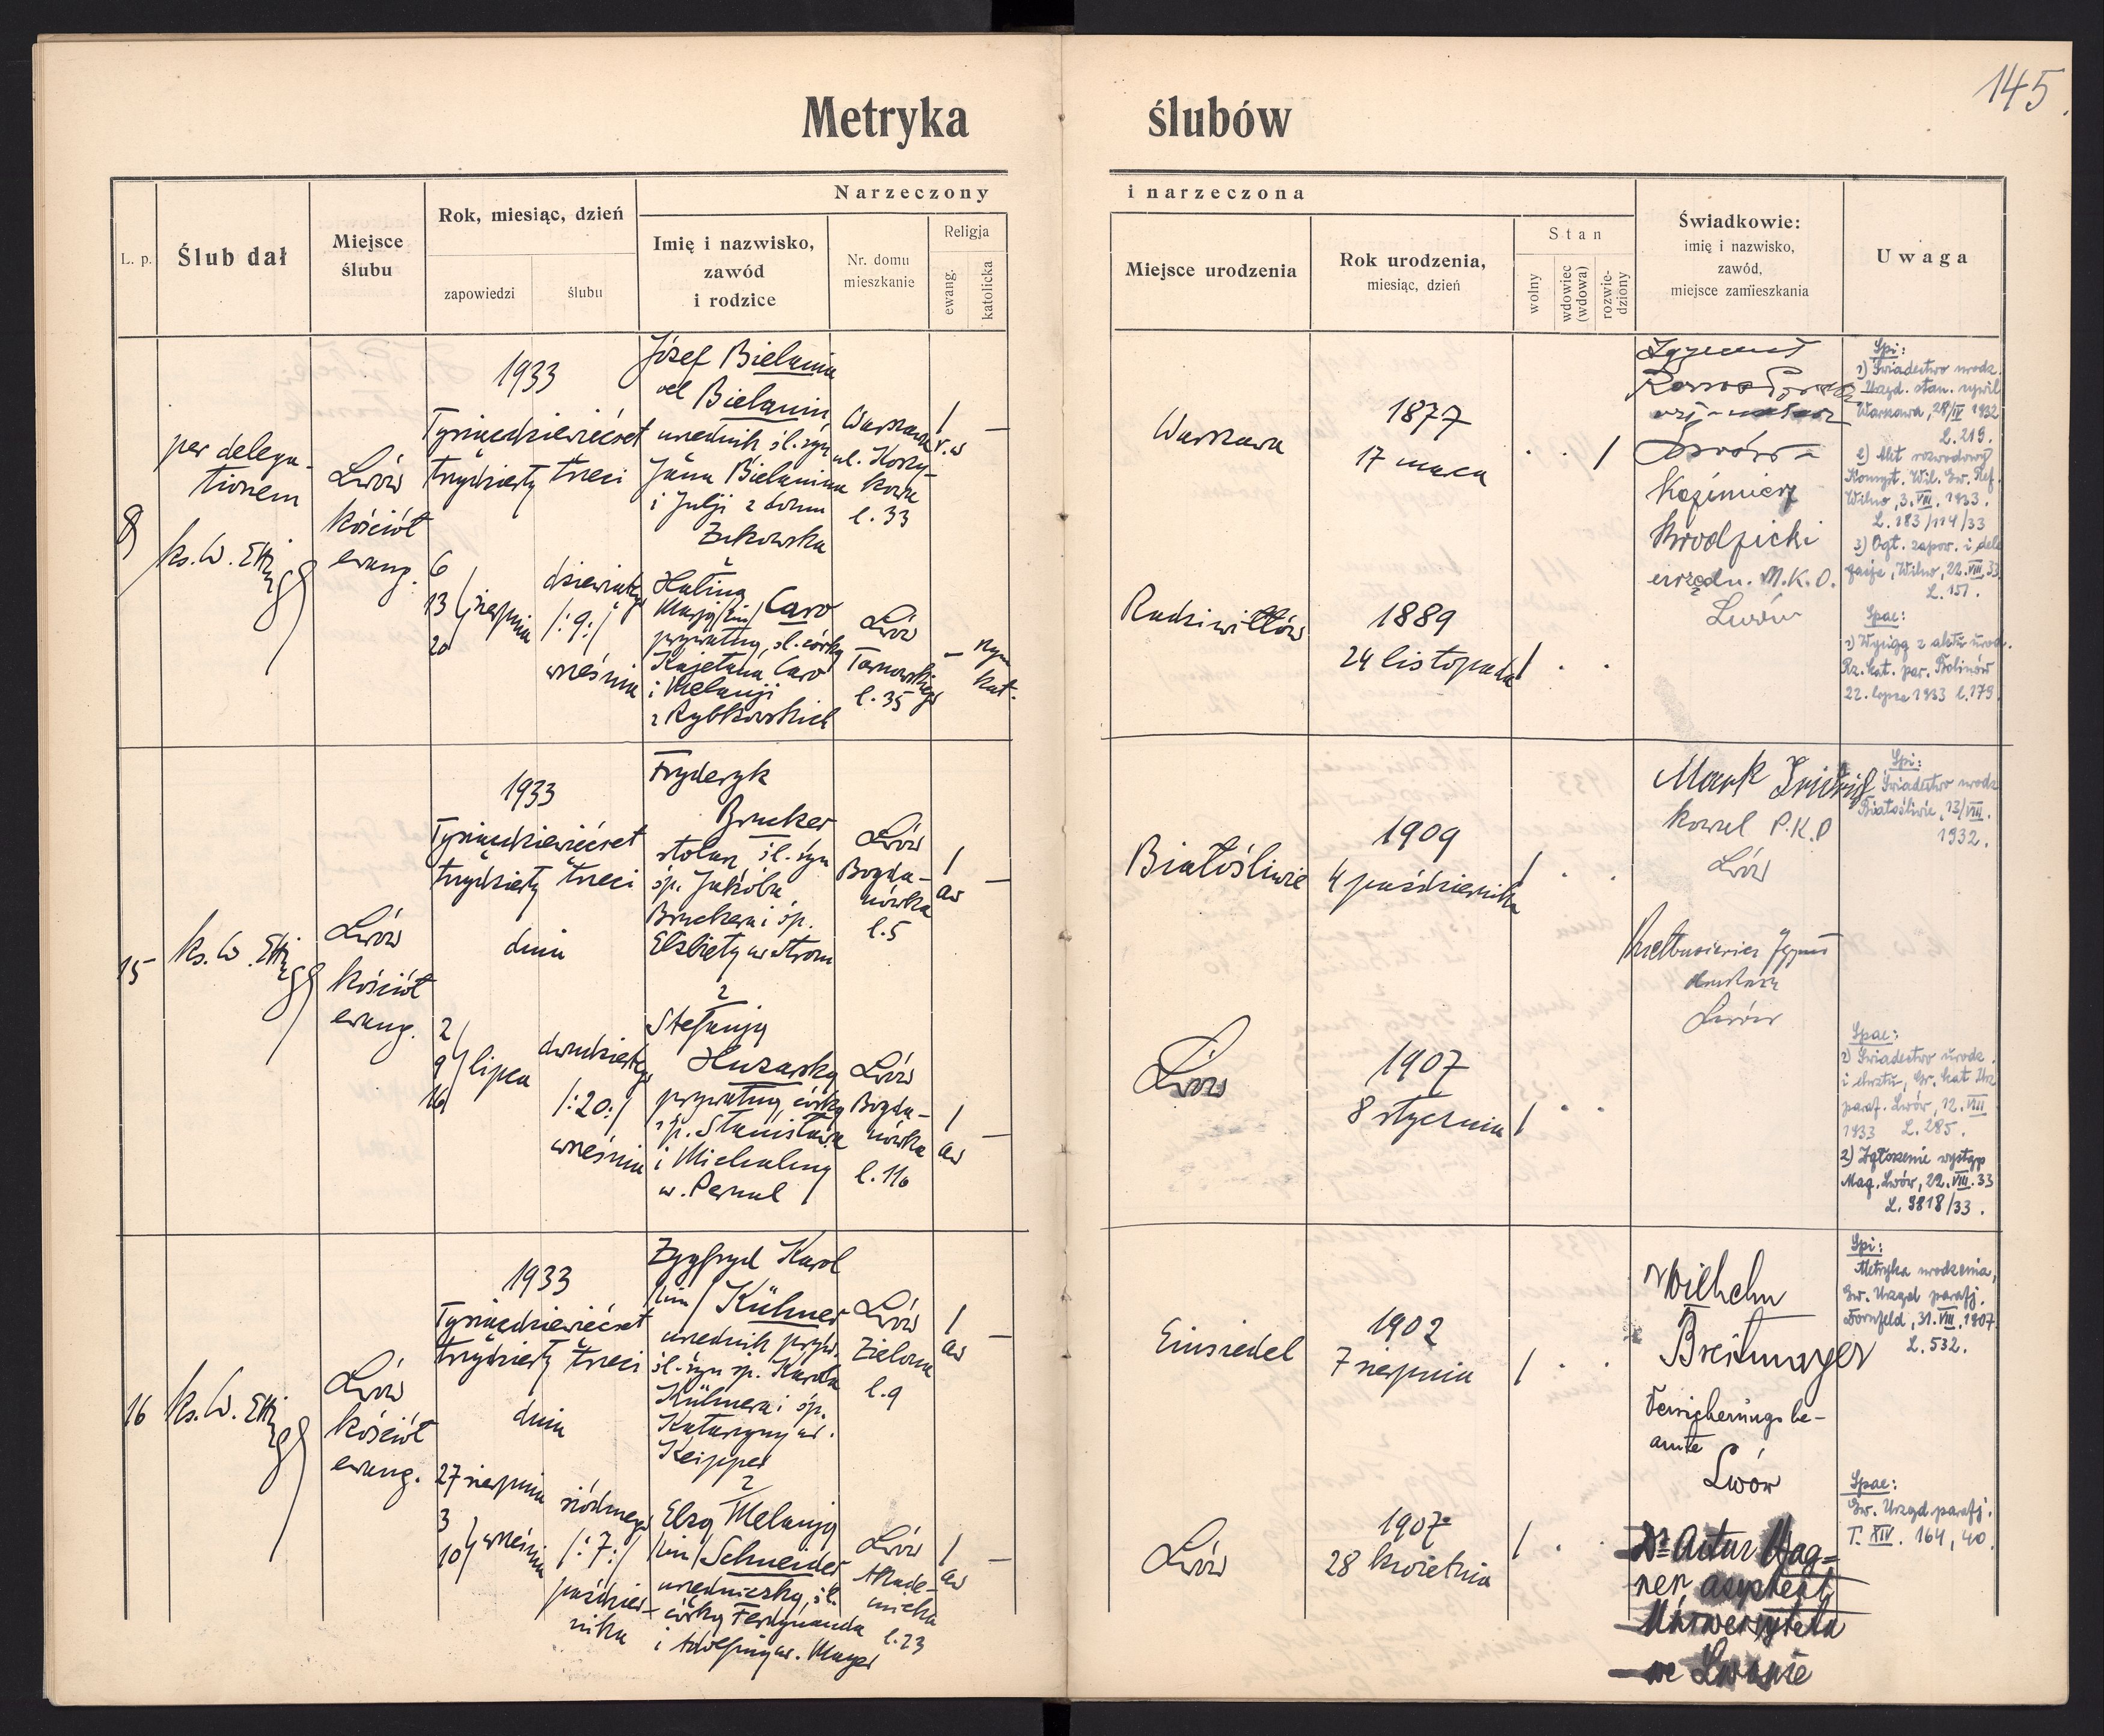 145
Metryka ślubów
L. p.
Ślub dał
Miejsce
ślubu
Rok, miesiąc, dzień
zapowiedzi
ślubu
Narzeczony i narzeczona
Imię i nazwisko,
zawód
i rodzice
Nr. domu
mieszkanie
Religja
ewang.
katolicka
Miejsce urodzenia
Rok urodzenia,
miesiąc, dzień
Stan
wolny
wdowiec
(wdowa)
rozwie-
dziony
Świadkowie:
imię i nazwisko,
zawód,
miejsce zamieszkania
Uwaga
8
per delega-
tionem
ks. W.
Lwów
kościół
ewang.
1933
Tysiącdziewięćset
trzydziesty trzeci
6
13 sierpnia
20
dziewiątego
/:9:/
września
Józef Bielania
vel Bielanin
urzednik śl. syn
Jana Bielanina
i Julji z domu
Żukowska
Warszawa
ul. Koszy-
kowa
l. 33
/
—
Halina
Marja /im/ Caro
prywatna, śl. córka
Kajetana Caro
i Melanji
z Rybkowskich
Lwów
Tarnowskiego
l. 35
—
rzym
kat.
Warszawa
1877
17 marca
. . /
Radziwiłłów
1889
24 listopada
/ . .
Kazimierz
urzędn. M.K.O.
Lwów
Spi:
1) Świadectwo urodz.
Urzęd. stan. cywil
Warszawa, 28/IV 1932
L. 219.
2) Akt rozwodowy
Konsyst. Wil. Ew. Ref.
Wilno, 3. VIII. 1933.
L. 183/114/33
3) Ogł. zapow. i dele
gacja, Wilno, 22. VIII. 33
L. 151.
Spae:
1) Wyciąg z aktu urodz.
Rz. kat. par.
22. lipca 1933 l. 179.
15
ks. W.
Lwów
kościół
ewang.
1933
Tysiącdziewięćset
trzydziesty trzeci
dnia
2
9 lipca
16
dwudziestego
/:20:/
września
Fryderyk
Brucker
stolarz śl. syn
śp. Jakóba
Bruckera i śp.
Elżbiety ur. Strom
Lwów
Bogda-
nówka
l. 5
/
aw
—
z
Stefanją
Huzarską
prywatną córką
śp. Stanisława
i Michaliny
ur. Pernal
Lwów
Bogda-
nówka
l. 116
/
aw
—
Białośliwie
1909
4 października
/ . .
Lwów
1907
8 stycznia
/ . .
Mark
kowal P.K.P
Lwów
Lwów
Spi:
Świadectwo urodz
Białośliwie, 13/VIII.
1932.
Spae:
1) Świadectwo urodz.
i chrztu, Gr. kat Urz
paraf. Lwów, 12. VIII
1933 L. 285.
2) Zgłoszenie wystąp
Mag. Lwów, 22. VIII. 33
L. 9818/33.
16
ks. W.
Lwów
kościół
ewang.
1933
Tysiącdziewięćset
trzydziesty trzeci
dnia
27 sierpnia
3
10 września
siódmego
/:7:/
paździer-
nika
Zygfryd Karol
/im/ Kühner
urzednik pryw.
śl. syn śp. Karola
Kühnera i śp.
Katarzyny ur.
Keipper
Lwów
Zielona
l. 9
/
aw
—
z
Elzą Melanją
/im/ Schneider
urzedniczką, śl.
córką Ferdynanda
i Adolfiny ur. Mayer
Lwów
Akade-
micka
l. 23
/
aw
—
Einsiedel
1902
7 sierpnia
/ . .
Lwów
1907
28 kwietnia
/ . .
Wilhelm
Breitmayer
Versicherungsbe-
amte
Lwów
Dr Artur Wag-
ner, asystent
Uniwersytetu
we Lwowie
Spi:
Metryka urodzenia,
Ew. Urząd parafj.
Dornfeld, 31. VIII. 1907.
L. 532.
Spae:
Ew. Urząd parafj.
T. XIV. 164, 40.